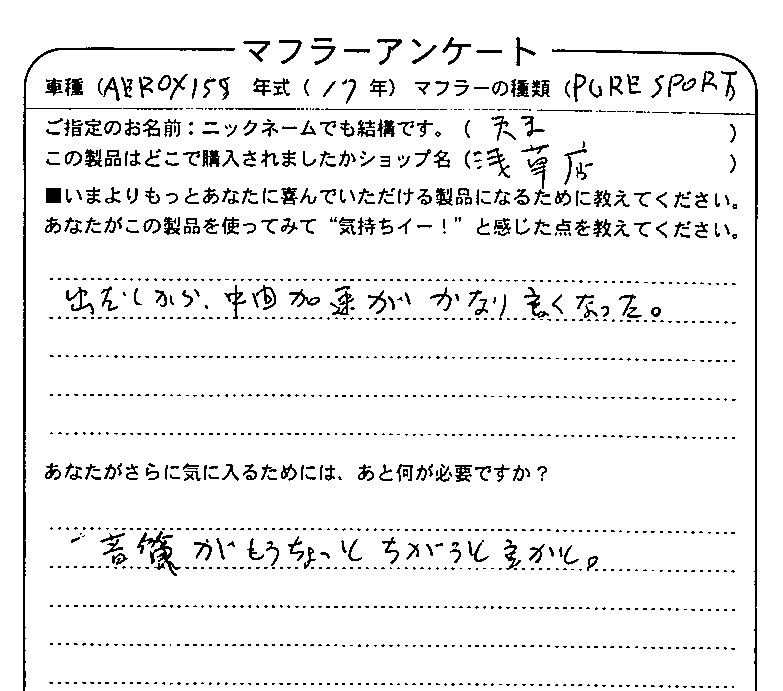 マフラーアンケート
車種（AEROX155 年式（17年）マフラーの種類（PURE SPORT）
ご指定のお名前：ニックネームでも結構です。（天王）
この製品はどこで購入されましたかショップ名（浅草店）
■いまよりもっとあなたに喜んでいただける製品になるために教えてください。
あなたがこの製品を使ってみて“気持ちイー！”と感じた点を教えてください。
出だしから、中間加速がかなり良くなった。
あなたがさらに気に入るためには、あと何が必要ですか？
音質がもうちょっとちがうと良かと。